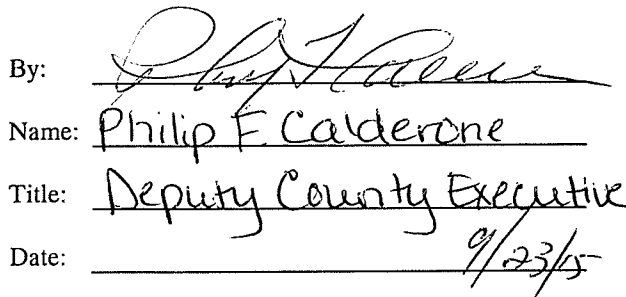 By:
Name: Philip F. Calderone
Title: Deputy County Executive
Date: 9/23/15